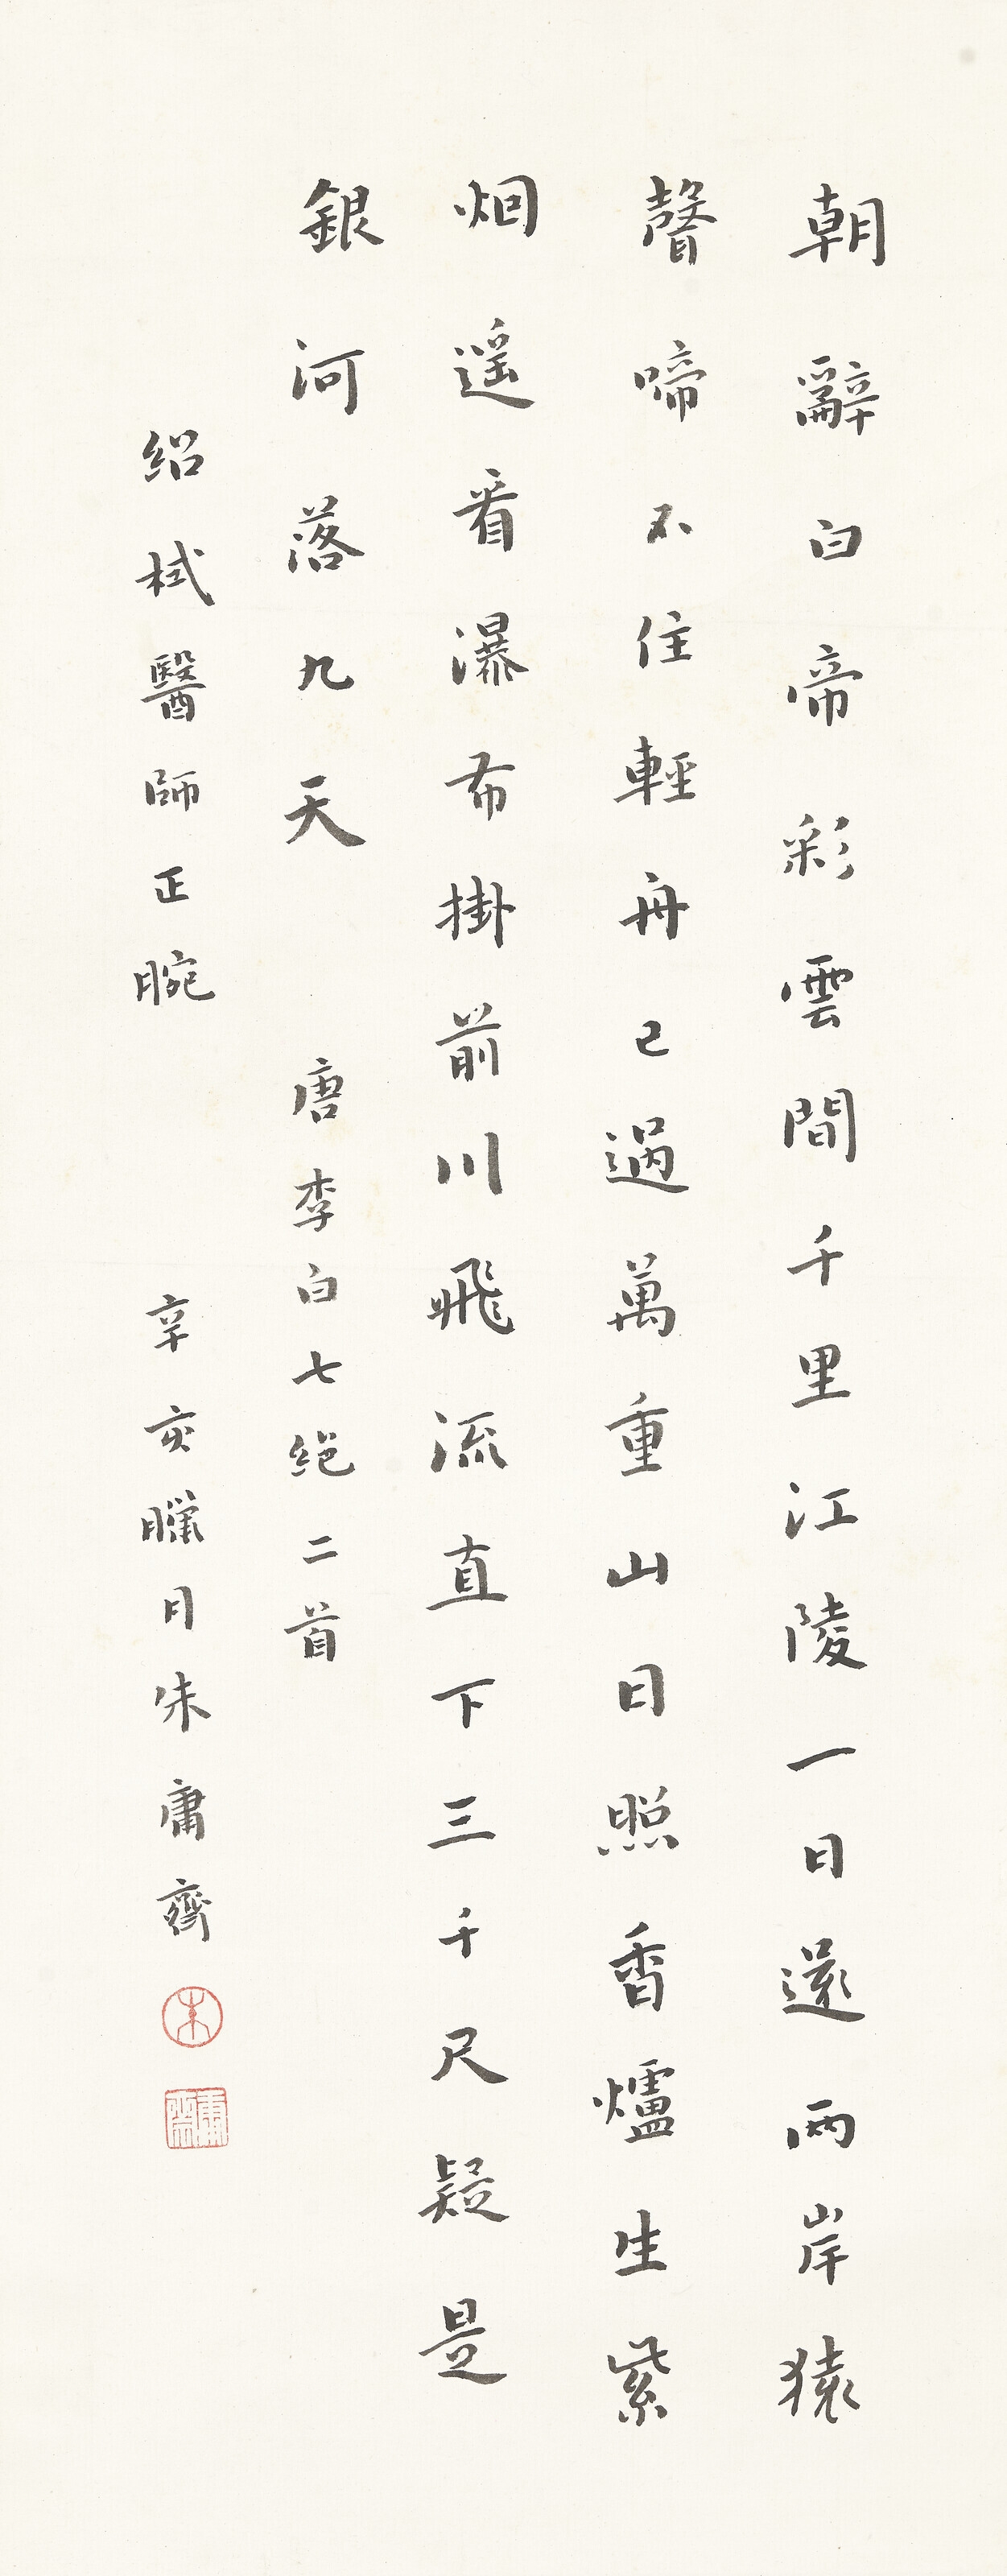 朝辭白帝彩雲間千里江陵一日還兩岸猿
聲啼不住輕舟已過萬重山日照香爐生紫
烟遥看瀑布掛前川飛流直下三千尺疑是
銀河落九天 唐李白七絕二首
紹栻醫師正腕 辛亥臘月朱庸齋
朱
庸齋